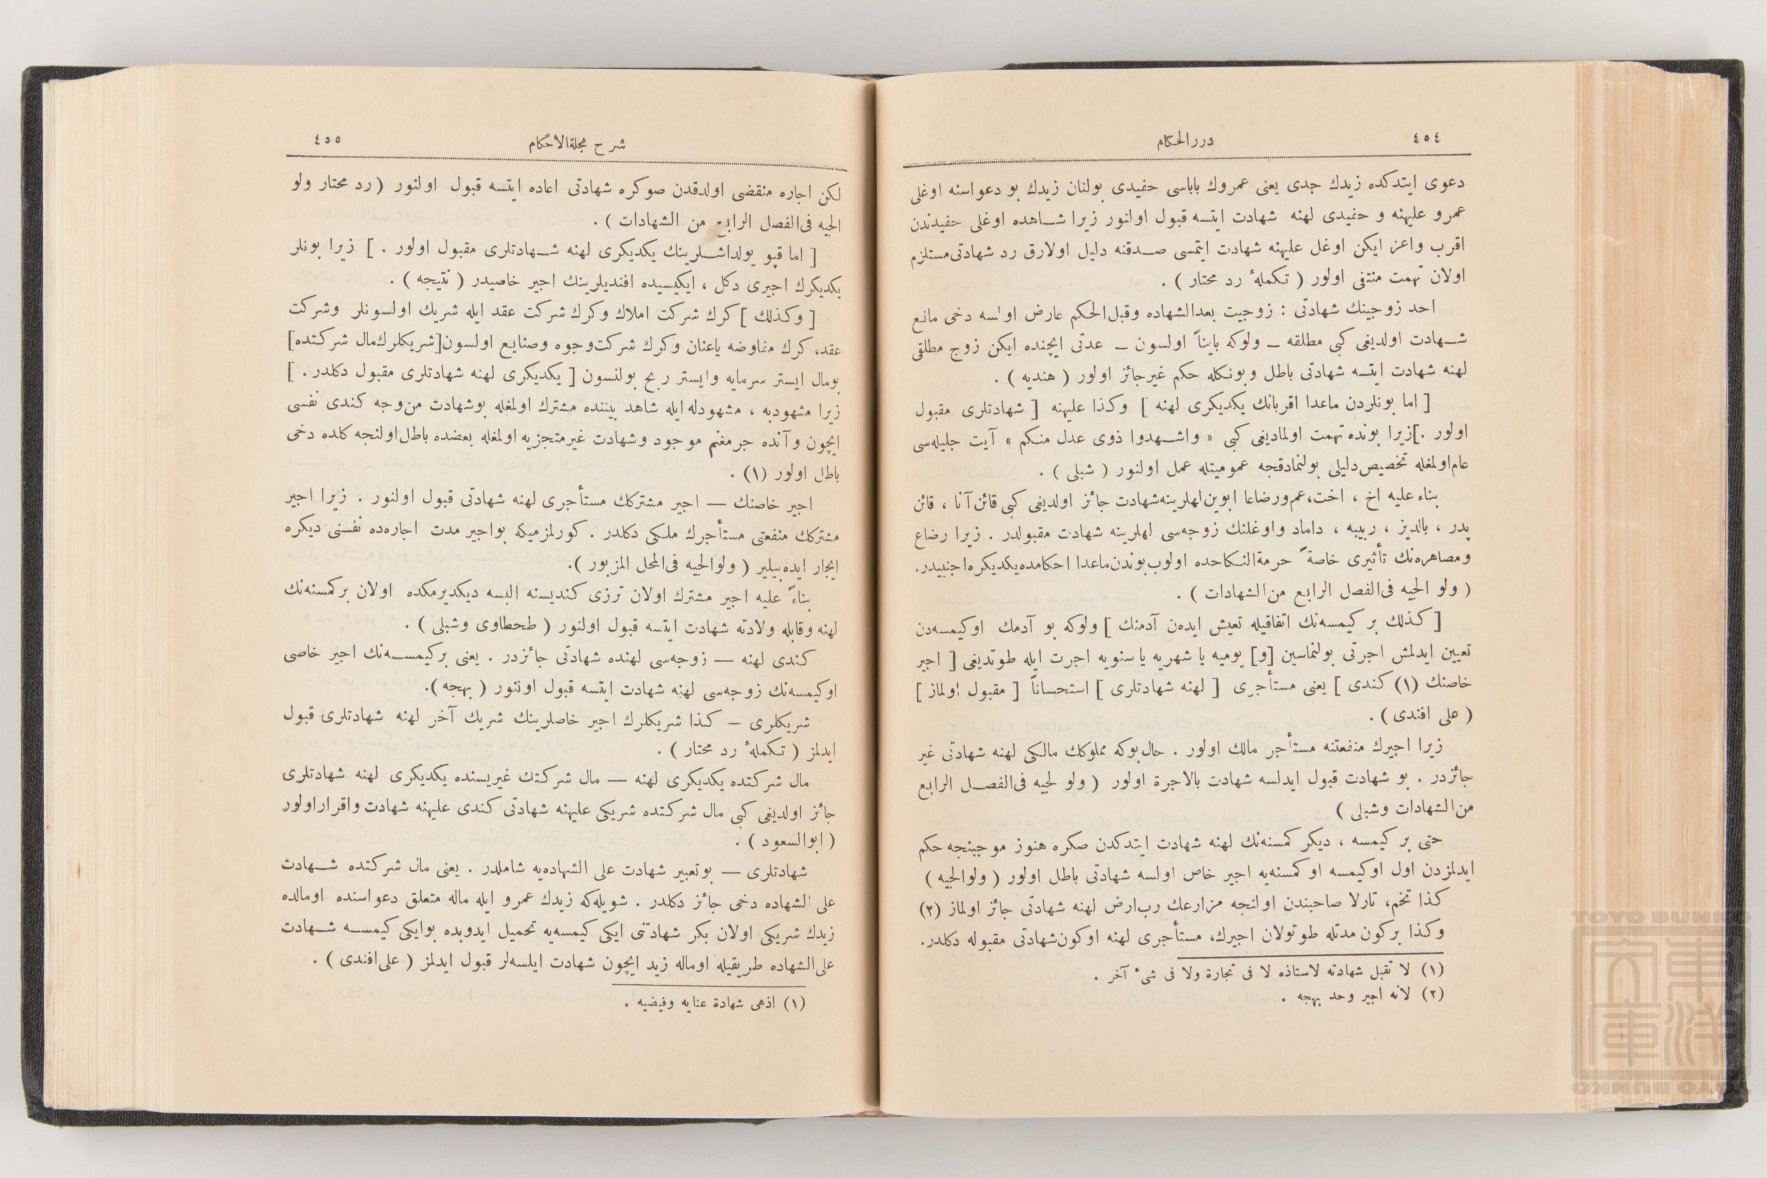 ٤٥٤
دررالحکام
دعوى ایتدکده زیدك جدی یعنی عمروك باباسی حفیدی بولنان زیدك بو دعواسنه اوغلی
عمرو علیهنه و حفیدی لهنه شهادت ایتسه قبول اولنور زیرا شاهده اوغلی حفیدندن
اقرب واعز ایکن اوغل علیهنه شهادت ایتمسی صدقنه دلیل اولارق رد شهادتی مستلزم
اولان تهمت منتفی اولور ( تکملهٔ رد محتار ) .
احد زوجینك شهادتی : زوجیت بعدالشهاده وقبل‌الحکم عارض اولسه دخی مانع
شهادت اولدیغی کبی مطلقه ــ ولوکه بایناً اولسون ــ عدتی ایچنده ایکن زوج مطلقی
لهنه شهادت ایتسه شهادتی باطل وبونکله حکم غیرجائز اولور ( هندیه ) .
[ اما بونلردن ماعدا اقربانك یکدیکری لهنه ] وکذا علیهنه [ شهادتلری مقبول
اولور .]زیرا بونده تهمت اولمادیغی کبی « واشهدوا ذوی عدل منکم » آیت جلیله‌سی
عام‌اولمغله تخصیص‌دلیلی بولنمادقجه عمومیتله عمل اولنور ( شبلی ) .
بناء علیه اخ ، اخت،عم‌ورضاعا ابوین‌لهلرینه‌شهادت جائز اولدیغی کبی قائن‌آنا ، قائن
پدر ، بالدیز ، ربیبه ، داماد واوغلنك زوجه‌سی لهلرینه شهادت مقبولدر . زیرا رضاع
ومصاهره‌نك تأثیری خاصةً حرمةالنکاحده اولوب‌بوندن‌ماعدا احکامده‌یکدیکره‌اجنبیدر.
( ولو الجیه فی‌الفصل الرابع من‌الشهادات ) .
[ کذلك بر کیمسه‌نك اتفاقیله تعیش ایدەن آدمنك ] ولوکه بو آدمك اوکیمسه‌دن
تعیین ایدلمش اجرتی بولنماسین [و] یومیه یا شهریه یاسنویه اجرت ایله طوتدیغی [ اجیر
خاصنك (١) کندی ] یعنی مستأجری [ لهنه شهادتلری ] استحساناً [ مقبول اولماز ]
( علی افندی ) .
زیرا اجیرك منفعتنه مستأجر مالك اولور . حال‌بوکه مملوکك مالکی لهنه شهادتی غیر
جائزدر . بو شهادت قبول ایدلسه شهادت بالاجرة اولور ( ولو لجیه فی‌الفصل الرابع
من‌الشهادات وشبلی )
حتی بر کیمسه ، دیکر کمسنه‌نك لهنه شهادت ایتدکدن صکره هنوز موجبنجه حکم
ایدلمزدن اول اوکیمسه او کمسنه‌یه اجیر خاص اولسه شهادتی باطل اولور ( ولوالجیه )
کذا تخم، تارلا صاحبندن اولنجه مزارعك رب‌ارض لهنه شهادتی جائز اولماز (٢)
وکذا برکون مدتله طوتولان اجیرك، مستأجری لهنه اوکون‌شهادتی مقبوله دکلدر.
(١) لا تقبل شهادته لاستاذه لا فی تجارة ولا فی شیٔ آخر .
(٢) لانه اجیر وحد بهجه .
شرح مجلةالاحکام
٤٥٥
لکن اجاره منقضی اولدقدن صوکره شهادتی اعاده ایتسه قبول اولنور (رد محتار ولو
الجیه فی‌الفصل الرابع من الشهادات ) .
[ اما قپو یولداشلرینك یکدیکری لهنه شهادتلری مقبول اولور . ] زیرا بونلر
یکدیکرك اجیری دکل ، ایکیسیده افندیلرینك اجیر خاصیدر ( نتیجه ) .
[ وکذلك ] کرك شرکت املاك وکرك شرکت عقد ایله شریك اولسونلر وشرکت
عقد، کرك مفاوضه یاعنان وکرك شرکت‌وجوه وصنایع اولسون[شریکلرك‌مال شرکتده]
بومال ایستر سرمایه وایستر ربح بولنسون [ یکدیکری لهنه شهادتلری مقبول دکلدر . ]
زیرا مشهودبه ، مشهودله‌ایله شاهد بیننده مشترك اولمغله بوشهادت من‌وجه کندی نفسی
ایچون وآنده جرمغنم موجود وشهادت غیرمتجزیه اولمغله بعضده باطل‌اولنجه کلده دخی
باطل اولور (١) .
اجیر خاصنك — اجیر مشترکك مستأجری لهنه شهادتی قبول اولنور . زیرا اجیر
مشترکك منفعتی مستأجرك ملکی دکلدر . کورلمزمیکه بواجیر مدت اجاره‌ده نفسنی دیکره
ایجار ایده‌بیلیر ( ولوالجیه فی‌المحل المزبور ).
بناءً علیه اجیر مشترك اولان ترزی کندیسنه البسه دیکدیرمکده اولان برکمسنه‌نك
لهنه وقابله ولادته شهادت ایتسه قبول اولنور ( طحطاوی وشبلی ) .
کندی لهنه — زوجه‌سی لهنده شهادتی جائزدر . یعنی برکیمسه‌نك اجیر خاصی
اوکیمسه‌نك زوجه‌سی لهنه شهادت ایتسه قبول اولنور ( بهجه ).
شریکلری — کذا شریکلرك اجیر خاصلرینك شریك آخر لهنه شهادتلری قبول
ایدلمز ( تکملهٔ رد محتار ) .
مال شرکتده یکدیکری لهنه — مال شرکتك غیریسنده یکدیکری لهنه شهادتلری
جائز اولدیغی کبی مال شرکتده شریکی علیهنه شهادتی کندی علیهنه شهادت واقراراولور
( ابوالسعود ) .
شهادتلری — بوتعبیر شهادت علی الشهاده‌یه شاملدر . یعنی مال شرکتده شهادت
علی الشهاده دخی جائز دکلدر . شویله‌که زیدك عمرو ایله ماله متعلق دعواسنده اومالده
زیدك شریکی اولان بکر شهادتنی ایکی کیمسه‌یه تحمیل ایدوبده بوایکی کیمسه شهادت
علی‌الشهاده طریقیله اوماله زید ایچون شهادت ایلسه‌لر قبول ایدلمز ( علی‌افندی ) .
(١) اذهی شهادة عنایه وفیضیه .
TOYO BUNKO
東洋文庫
TOYO BUNKO